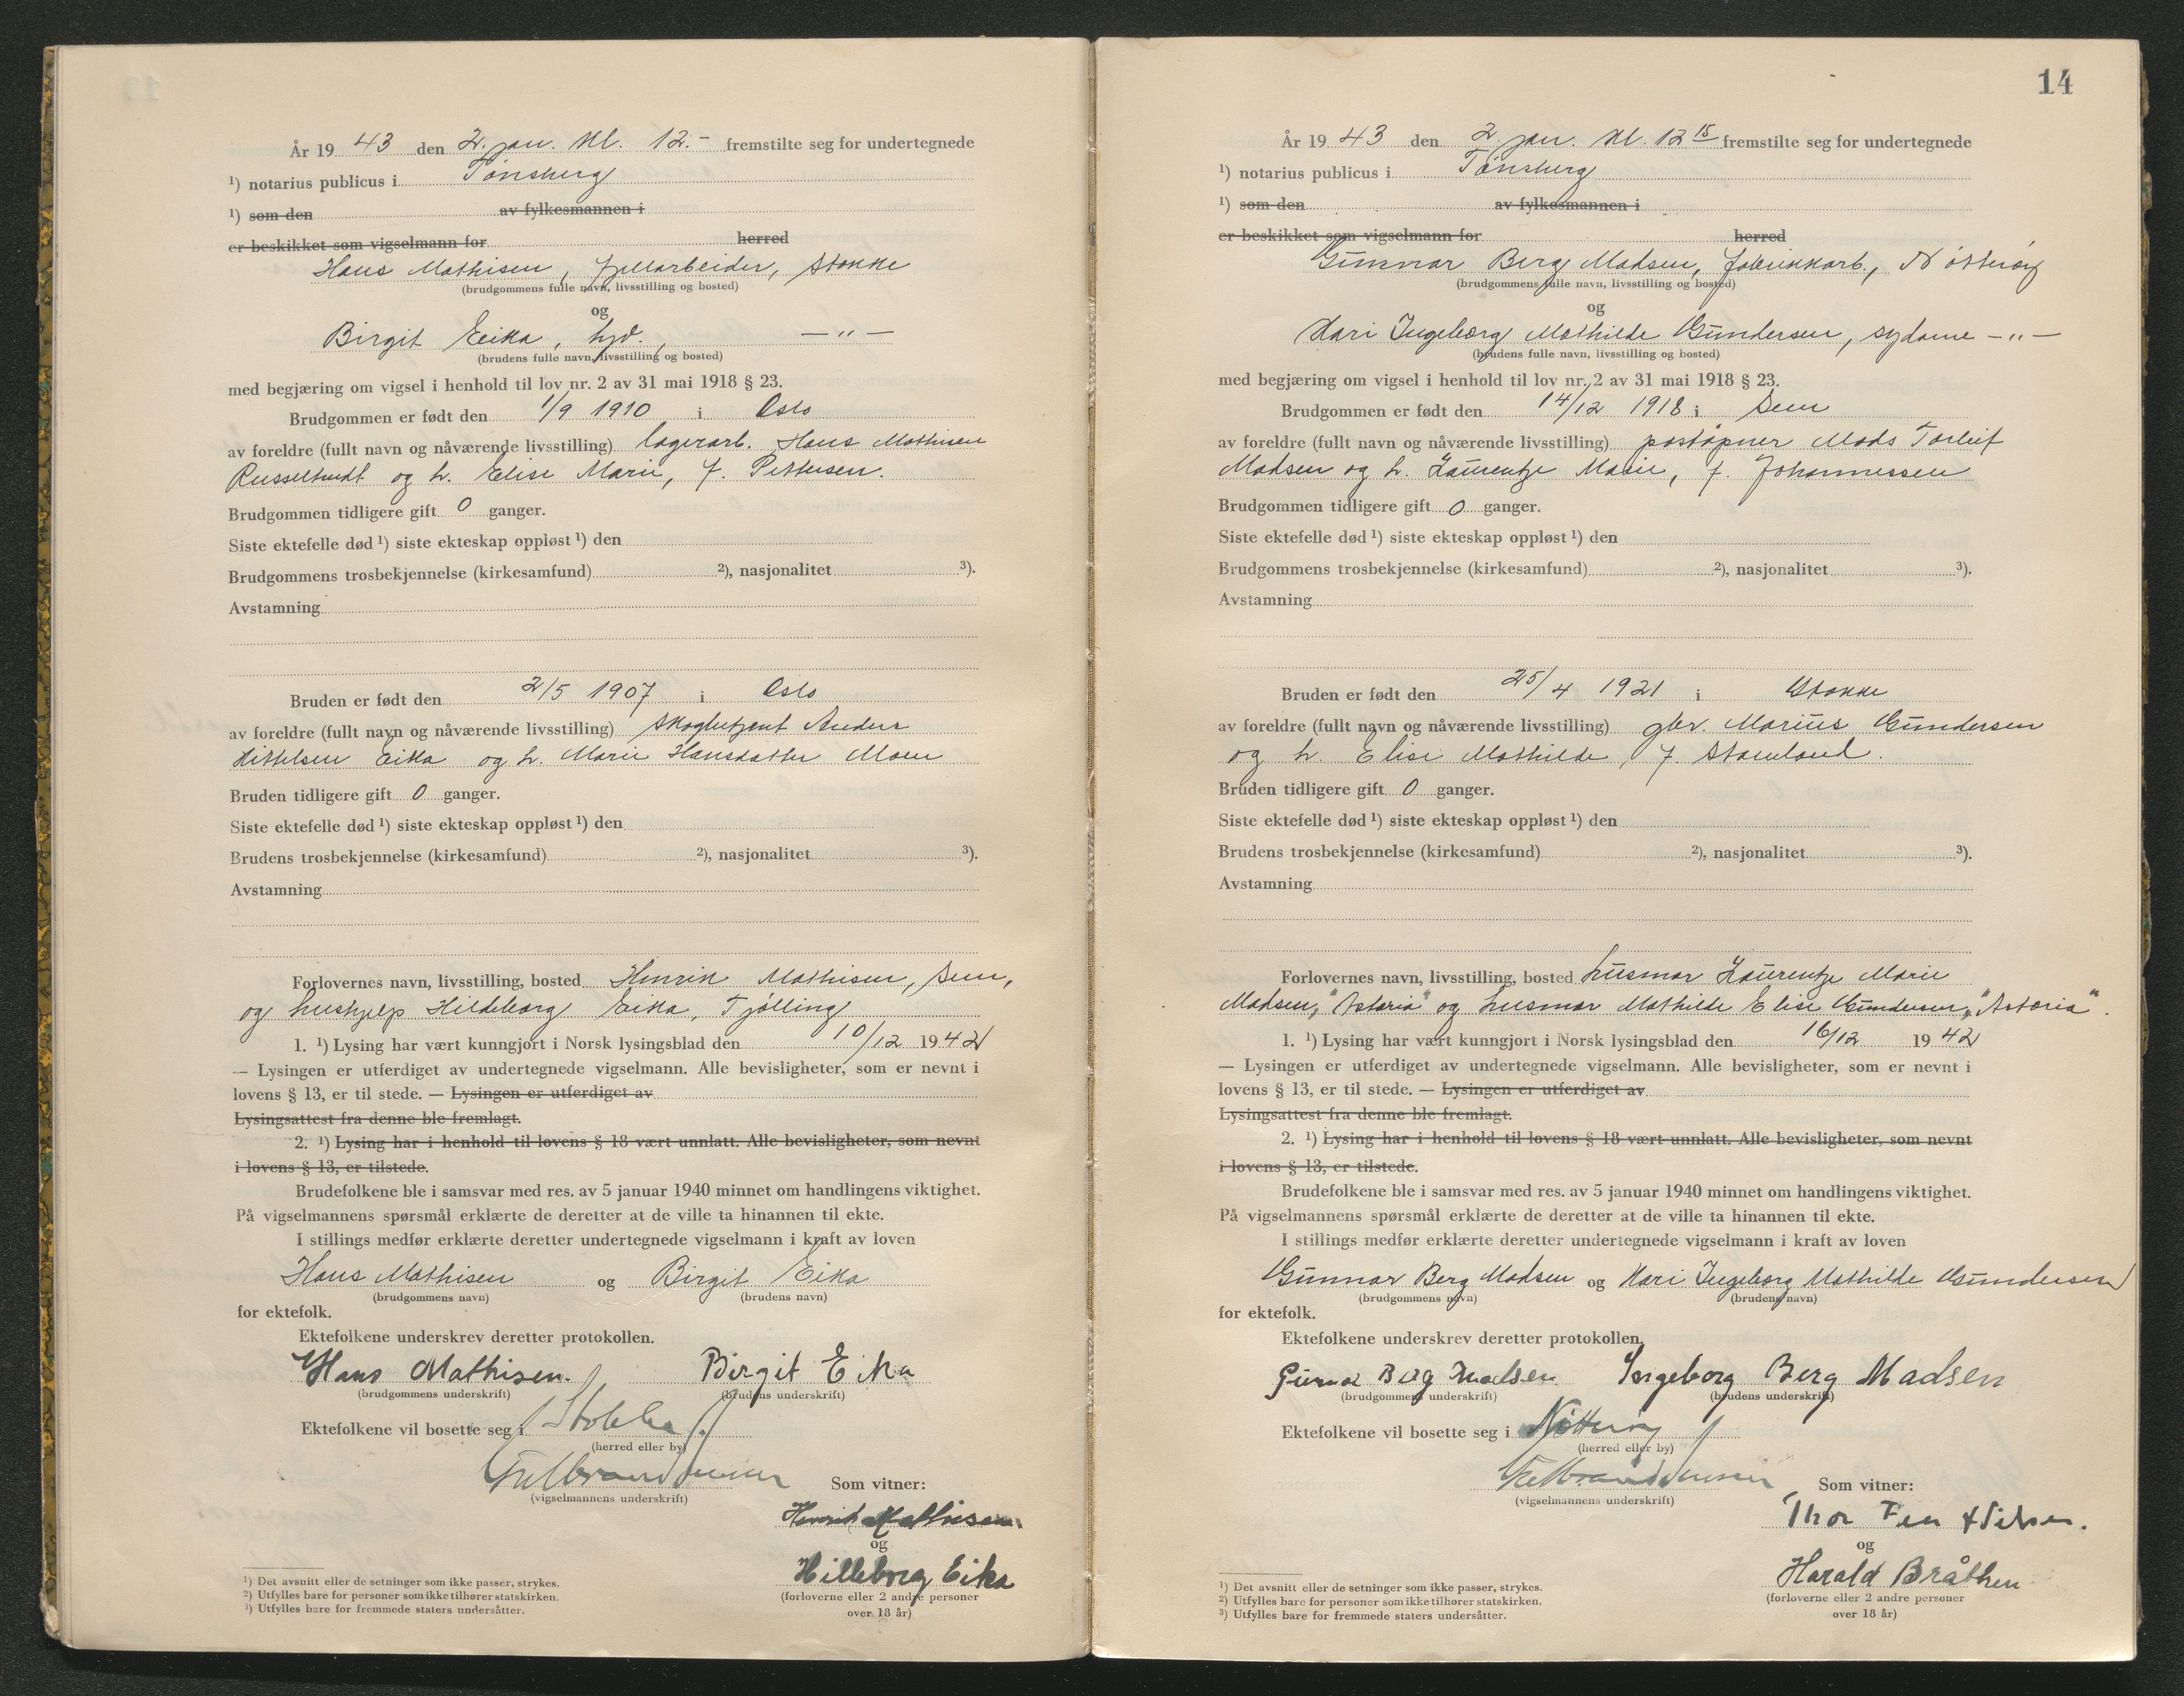 År 19 43 den 2. jan. kl. 12.- fremstilte seg for undertegnede
¹) notarius publicus i Tønsberg
¹) som den av fylkesmannen i
er beskikket som vigselmann for herred
Hans Mathisen, fjellarbeider, Stokke
(brudgommens fulle navn, livsstilling og bosted)
og
Birgit Eika, — " —
(brudens fulle navn, livsstilling og bosted)
med begjæring om vigsel i henhold til lov nr. 2 av 31 mai 1918 § 23.
Brudgommen er født den 1/9 1910 i Oslo
av foreldre (fullt navn og nåværende livsstilling) lagerarb. Hans Mathisen
og h. Elise Marie, f. Pettersen.
Brudgommen tidligere gift 0 ganger.
Siste ektefelle død ¹) siste ekteskap oppløst ¹) den
Brudgommens trosbekjennelse (kirkesamfund) ²), nasjonalitet ³).
Avstamning
Bruden er født den 2/5 1907 i Oslo
av foreldre (fullt navn og nåværende livsstilling) skogbetjent Anders
Kittelsen Eika og h. Marie Hansdatter Moen
Bruden tidligere gift 0 ganger.
Siste ektefelle død ¹) siste ekteskap oppløst ¹) den
Brudens trosbekjennelse (kirkesamfund) ²), nasjonalitet ³).
Avstamning
Forlovernes navn, livsstilling, bosted Henrik Mathisen, Sem,
og hushjelp Hildeborg Eika, Tjølling
1. ¹) Lysing har vært kunngjort i Norsk lysingsblad den 10/12 1942
— Lysingen er utferdiget av undertegnede vigselmann. Alle bevisligheter, som er nevnt i
lovens § 13, er til stede. — Lysingen er utferdiget av
Lysingsattest fra denne ble fremlagt.
2. ¹) Lysing har i henhold til lovens § 18 vært unnlatt. Alle bevisligheter, som nevnt
i lovens § 13, er tilstede.
Brudefolkene ble i samsvar med res. av 5 januar 1940 minnet om handlingens viktighet.
På vigselmannens spørsmål erklærte de deretter at de ville ta hinannen til ekte.
I stillings medfør erklærte deretter undertegnede vigselmann i kraft av loven
Hans Mathisen og Birgit Eika
(brudgommens navn) (brudens navn)
for ektefolk.
Ektefolkene underskrev deretter protokollen.
Hans Mathisen. Birgit Eika
(brudgommens underskrift) (brudens underskrift)
Ektefolkene vil bosette seg i Stokke
(herred eller by)
(vigselmannens underskrift) Som vitner:
Henrik Mathisen
og
Hilleborg Eika
(forloverne eller 2 andre personer
over 18 år)
¹) Det avsnitt eller de setninger som ikke passer, strykes.
²) Utfylles bare for personer som ikke tilhører statskirken.
³) Utfylles bare for fremmede staters undersåtter.
14
År 19 43 den 2. jan. kl. 12 15 fremstilte seg for undertegnede
¹) notarius publicus i Tønsberg
¹) som den av fylkesmannen i
er beskikket som vigselmann for herred
Gunnar Berg Madsen, fabrikkarb., Nøtterøy
(brudgommens fulle navn, livsstilling og bosted)
og
Kari Ingeborg Mathilde Gundersen, sydame — " —
(brudens fulle navn, livsstilling og bosted)
med begjæring om vigsel i henhold til lov nr. 2 av 31 mai 1918 § 23.
Brudgommen er født den 14/12 1918 i Sem
av foreldre (fullt navn og nåværende livsstilling) poståpner Mads Torleif
Madsen og h. Laurentze Marie, f. Johannessen
Brudgommen tidligere gift 0 ganger.
Siste ektefelle død ¹) siste ekteskap oppløst ¹) den
Brudgommens trosbekjennelse (kirkesamfund) ²), nasjonalitet ³).
Avstamning
Bruden er født den 25/4 1921 i Stokke
av foreldre (fullt navn og nåværende livsstilling) gbr. Marius Gundersen
og h. Elise Mathilde, f. Stamland.
Bruden tidligere gift 0 ganger.
Siste ektefelle død ¹) siste ekteskap oppløst ¹) den
Brudens trosbekjennelse (kirkesamfund) ²), nasjonalitet ³).
Avstamning
Forlovernes navn, livsstilling, bosted husmor Laurentze Marie
Madsen, "Astoria" og husmor Mathilde Elise Gundersen, "Astoria".
1. ¹) Lysing har vært kunngjort i Norsk lysingsblad den 16/12 1942
— Lysingen er utferdiget av undertegnede vigselmann. Alle bevisligheter, som er nevnt i
lovens § 13, er til stede. — Lysingen er utferdiget av
Lysingsattest fra denne ble fremlagt.
2. ¹) Lysing har i henhold til lovens § 18 vært unnlatt. Alle bevisligheter, som nevnt
i lovens § 13, er tilstede.
Brudefolkene ble i samsvar med res. av 5 januar 1940 minnet om handlingens viktighet.
På vigselmannens spørsmål erklærte de deretter at de ville ta hinannen til ekte.
I stillings medfør erklærte deretter undertegnede vigselmann i kraft av loven
Gunnar Berg Madsen og Kari Ingeborg Mathilde Gundersen
(brudgommens navn) (brudens navn)
for ektefolk.
Ektefolkene underskrev deretter protokollen.
Gunnar Berg Madsen Ingeborg Berg Madsen
(brudgommens underskrift) (brudens underskrift)
Ektefolkene vil bosette seg i Nøtterøy
(herred eller by)
(vigselmannens underskrift) Som vitner:
Thor Fen
og
Harald Bråthen
(forloverne eller 2 andre personer
over 18 år)
¹) Det avsnitt eller de setninger som ikke passer, strykes.
²) Utfylles bare for personer som ikke tilhører statskirken.
³) Utfylles bare for fremmede staters undersåtter.